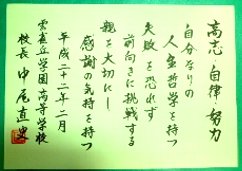 高志・自律・努力
自分なりの
人生哲学を持つ
失敗を恐れず
前向きに挑戦する
親を大切にし
感謝の気持を持つ
平成二十二年二月
雲雀丘学園高等学校
校長 中尾直史